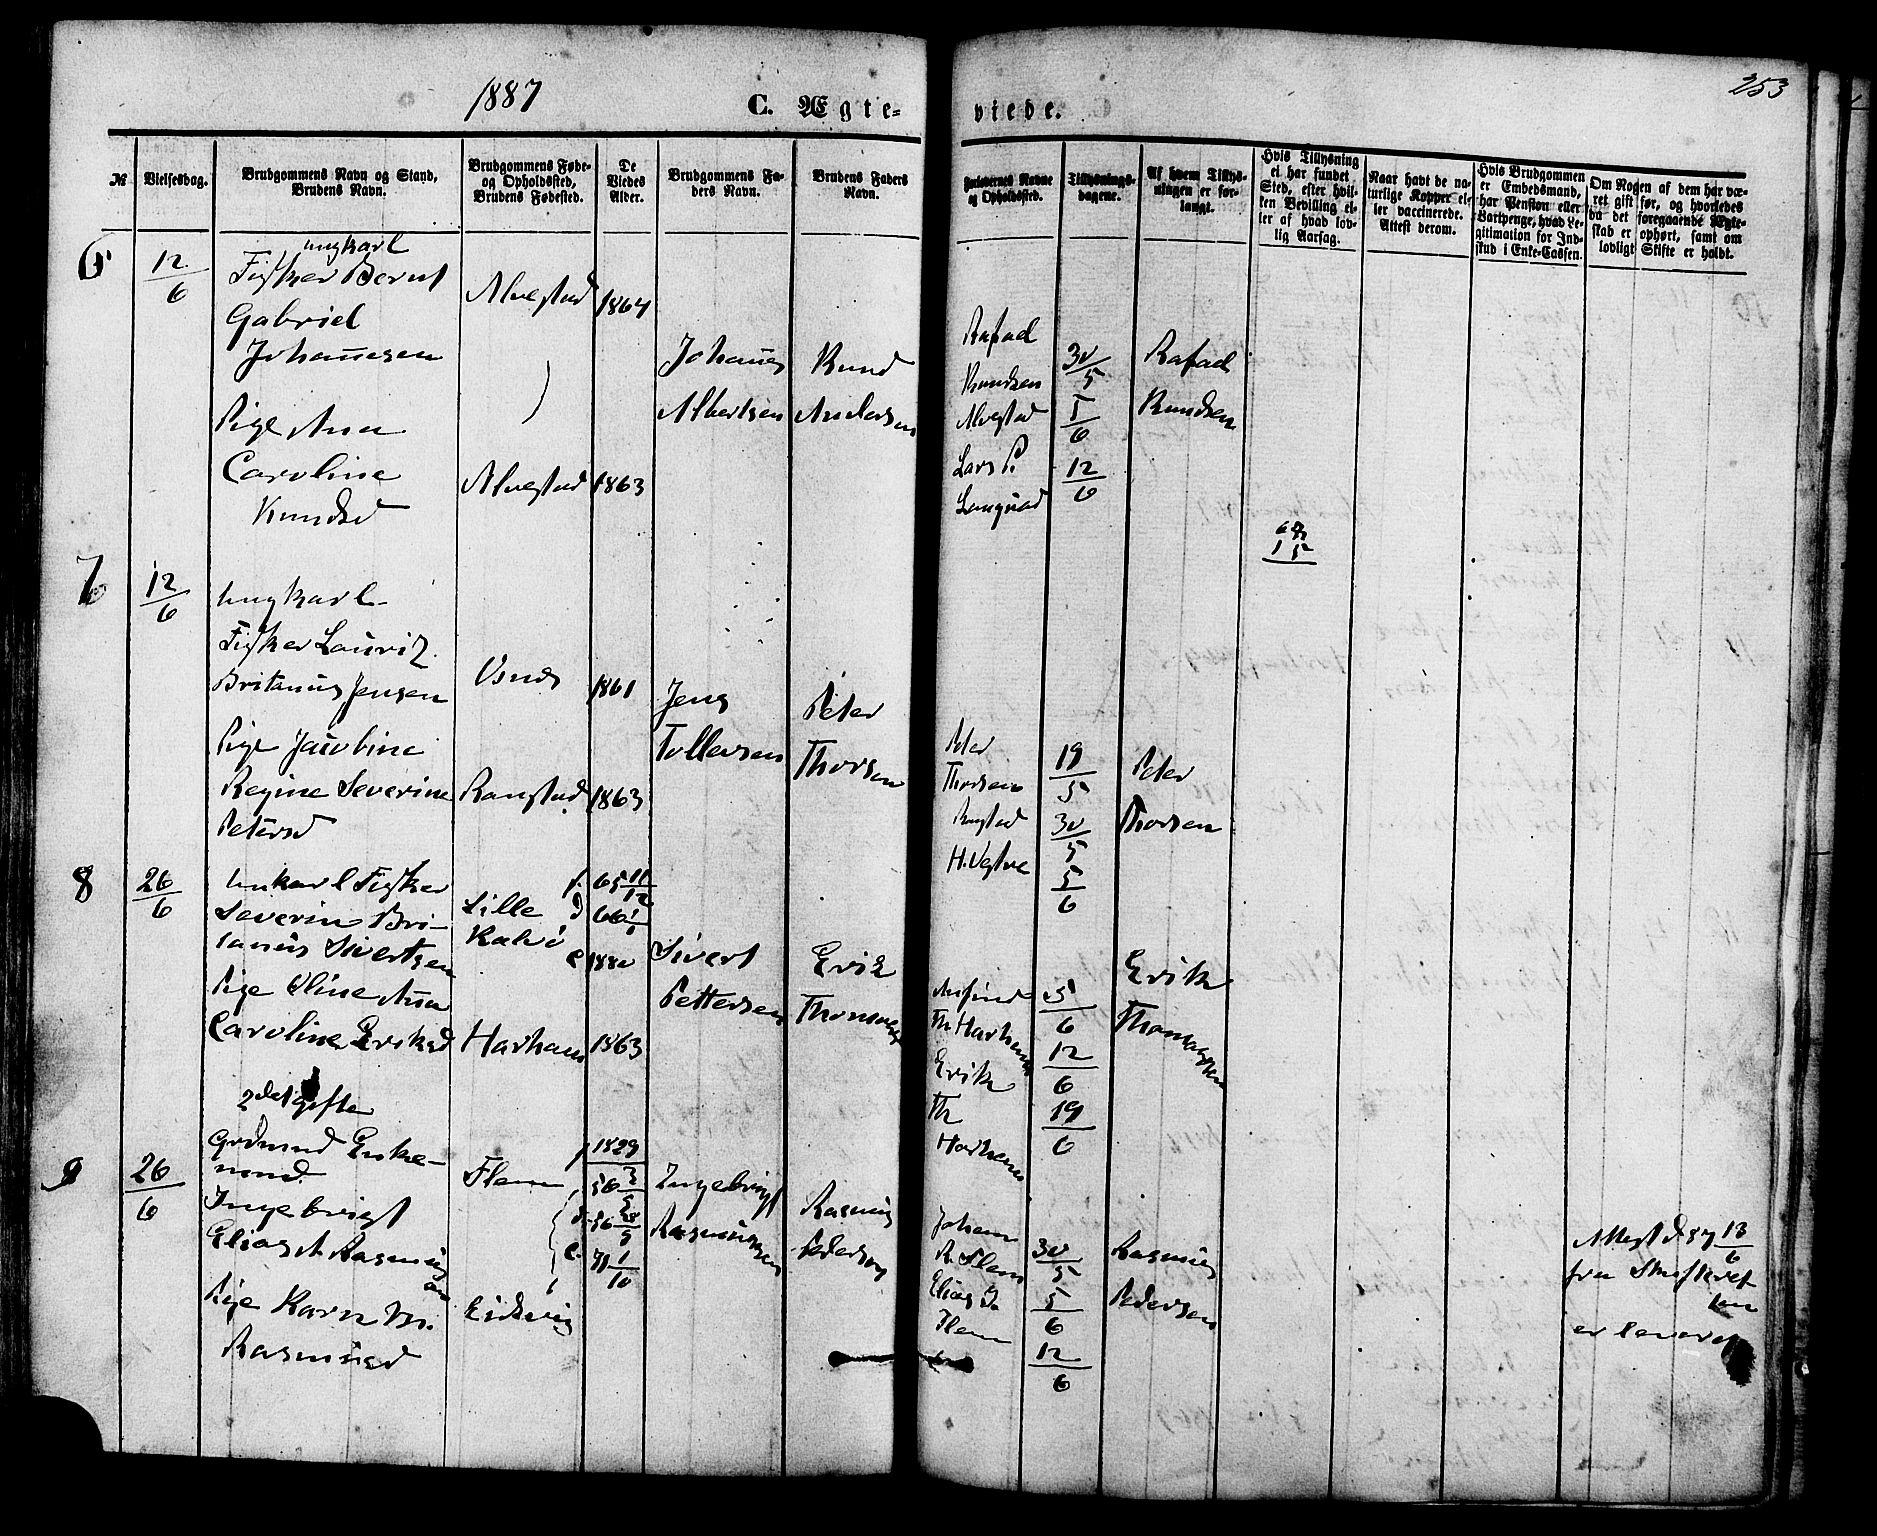 1887
C. Ægte-
viede.
253
№
Vielsesdag.
Brudgommens Navn og Stand,
Brudens Navn.
Brudgommens Føde-
og Opholdssted,
Brudens Fødested.
De
Viedes
Alder.
Brudgommens Fa-
ders Navn.
Brudens Faders
Navn.
Forlovernes Navne
og Opholdssted.
Tillysnings-
dagene.
Af hvem Tillys-
ningen er for-
langt.
Hvis Tillysning
ei har fundet
Sted, efter hvil-
ken Bevilling el-
ler af hvad lov-
lig Aarsag.
Naar havt de na-
turlige Kopper el-
ler vaccinerede.
Attest derom.
Hvis Brudgommen
er Embedsmand,
har Pension eller
Vartpenge, hvad Le-
gitimation for Ind-
skud i Enke-Cassen.
Om Nogen af dem har væ-
ret gift før, og hvorledes
da det foregaaende Ægte-
skab er ophørt, samt om
lovligt Skifte er holdt.
6
12/6
ungkarl
Fisker Bernt
Gabriel
Johannesen
Pige Ana
Caroline
Knudsd
Alvestad
Alvestad
1864
1863
Johanes
Albertsen
Knud
Andersen
Rafael
Knudsen
Alvestad
Lars P.
30/5
1/6
12/6
Rafael
Knudsen
7
12/6
ungkarl
Fisker Lauritz
Britanus Jensen
Pige Jacobine
Regine Severine
Petersd
Ranstad
1861
1863
Jens
Tollevsen
Peter
Thorsen
Peter
Thorsen
Ranstad
19/5
30/5
5/6
Peter
Thorsen
8
26/6
unkarl Fisker
Severin Bri-
tanius Sivertsen
Pige Oline Ana
Caroline Eriksd
Lille
Kalvø
Harham
f. 65 11/12
d 66 1/1
c 1880
1863
Sivert
Pettersen
Erik
Thomassen
Th Harham
Erik
Th
Harham
5/6
12/6
19/6
Erik
Thomassen
9
26/6
2det gifte
Gadmand Enke-
mand
Ingebrigt
Elias A Rasmus
sen
Pige Karn M.
Rasmusd
Flem
Eidsvig
f 1829
Ingebrigt
Rasmussen
Rasmus
Pedersen
Johan
R. Flem
Elias I.
Flem
30/5
5/6
12/6
Rasmus
Pedersen
Attest d 87 13/6
fra Skifteret
ten
er leveret